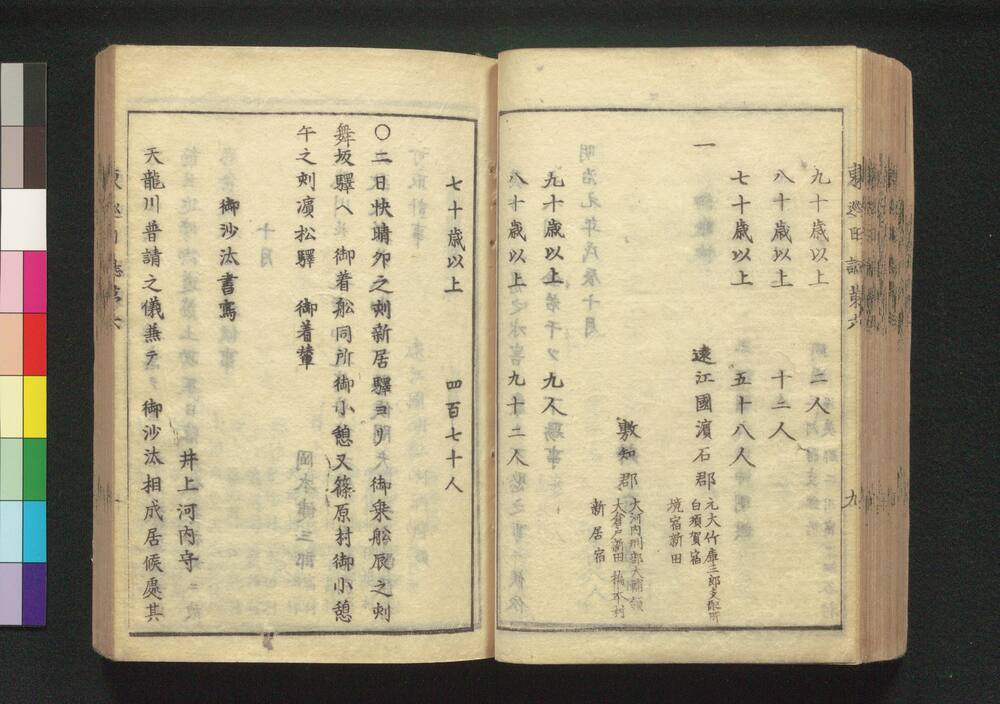 九十歳以上 二人
八十歳以上 十二人
七十歳以上 五十八人
一 遠江國濵石郡 元大竹庫三郎支配所
白須賀宿
境宿新田
敷知郡 大河内刑部大輔領
大倉戸新田 橋本村
新居宿
九十歳以上 九人
八十歳以上 九十二人
七十歳以上 四百七十人
〇二日快晴夘之刻新居驛ヨリ 御乗舩辰之刻
舞坂驛ヘ 御着舩同所御小憩又篠原村御小憩
午之刻濵松驛 御着輦
御沙汰書寫
井上河内守
天龍川普請之儀兼テヨリ 御沙汰相成居候處其